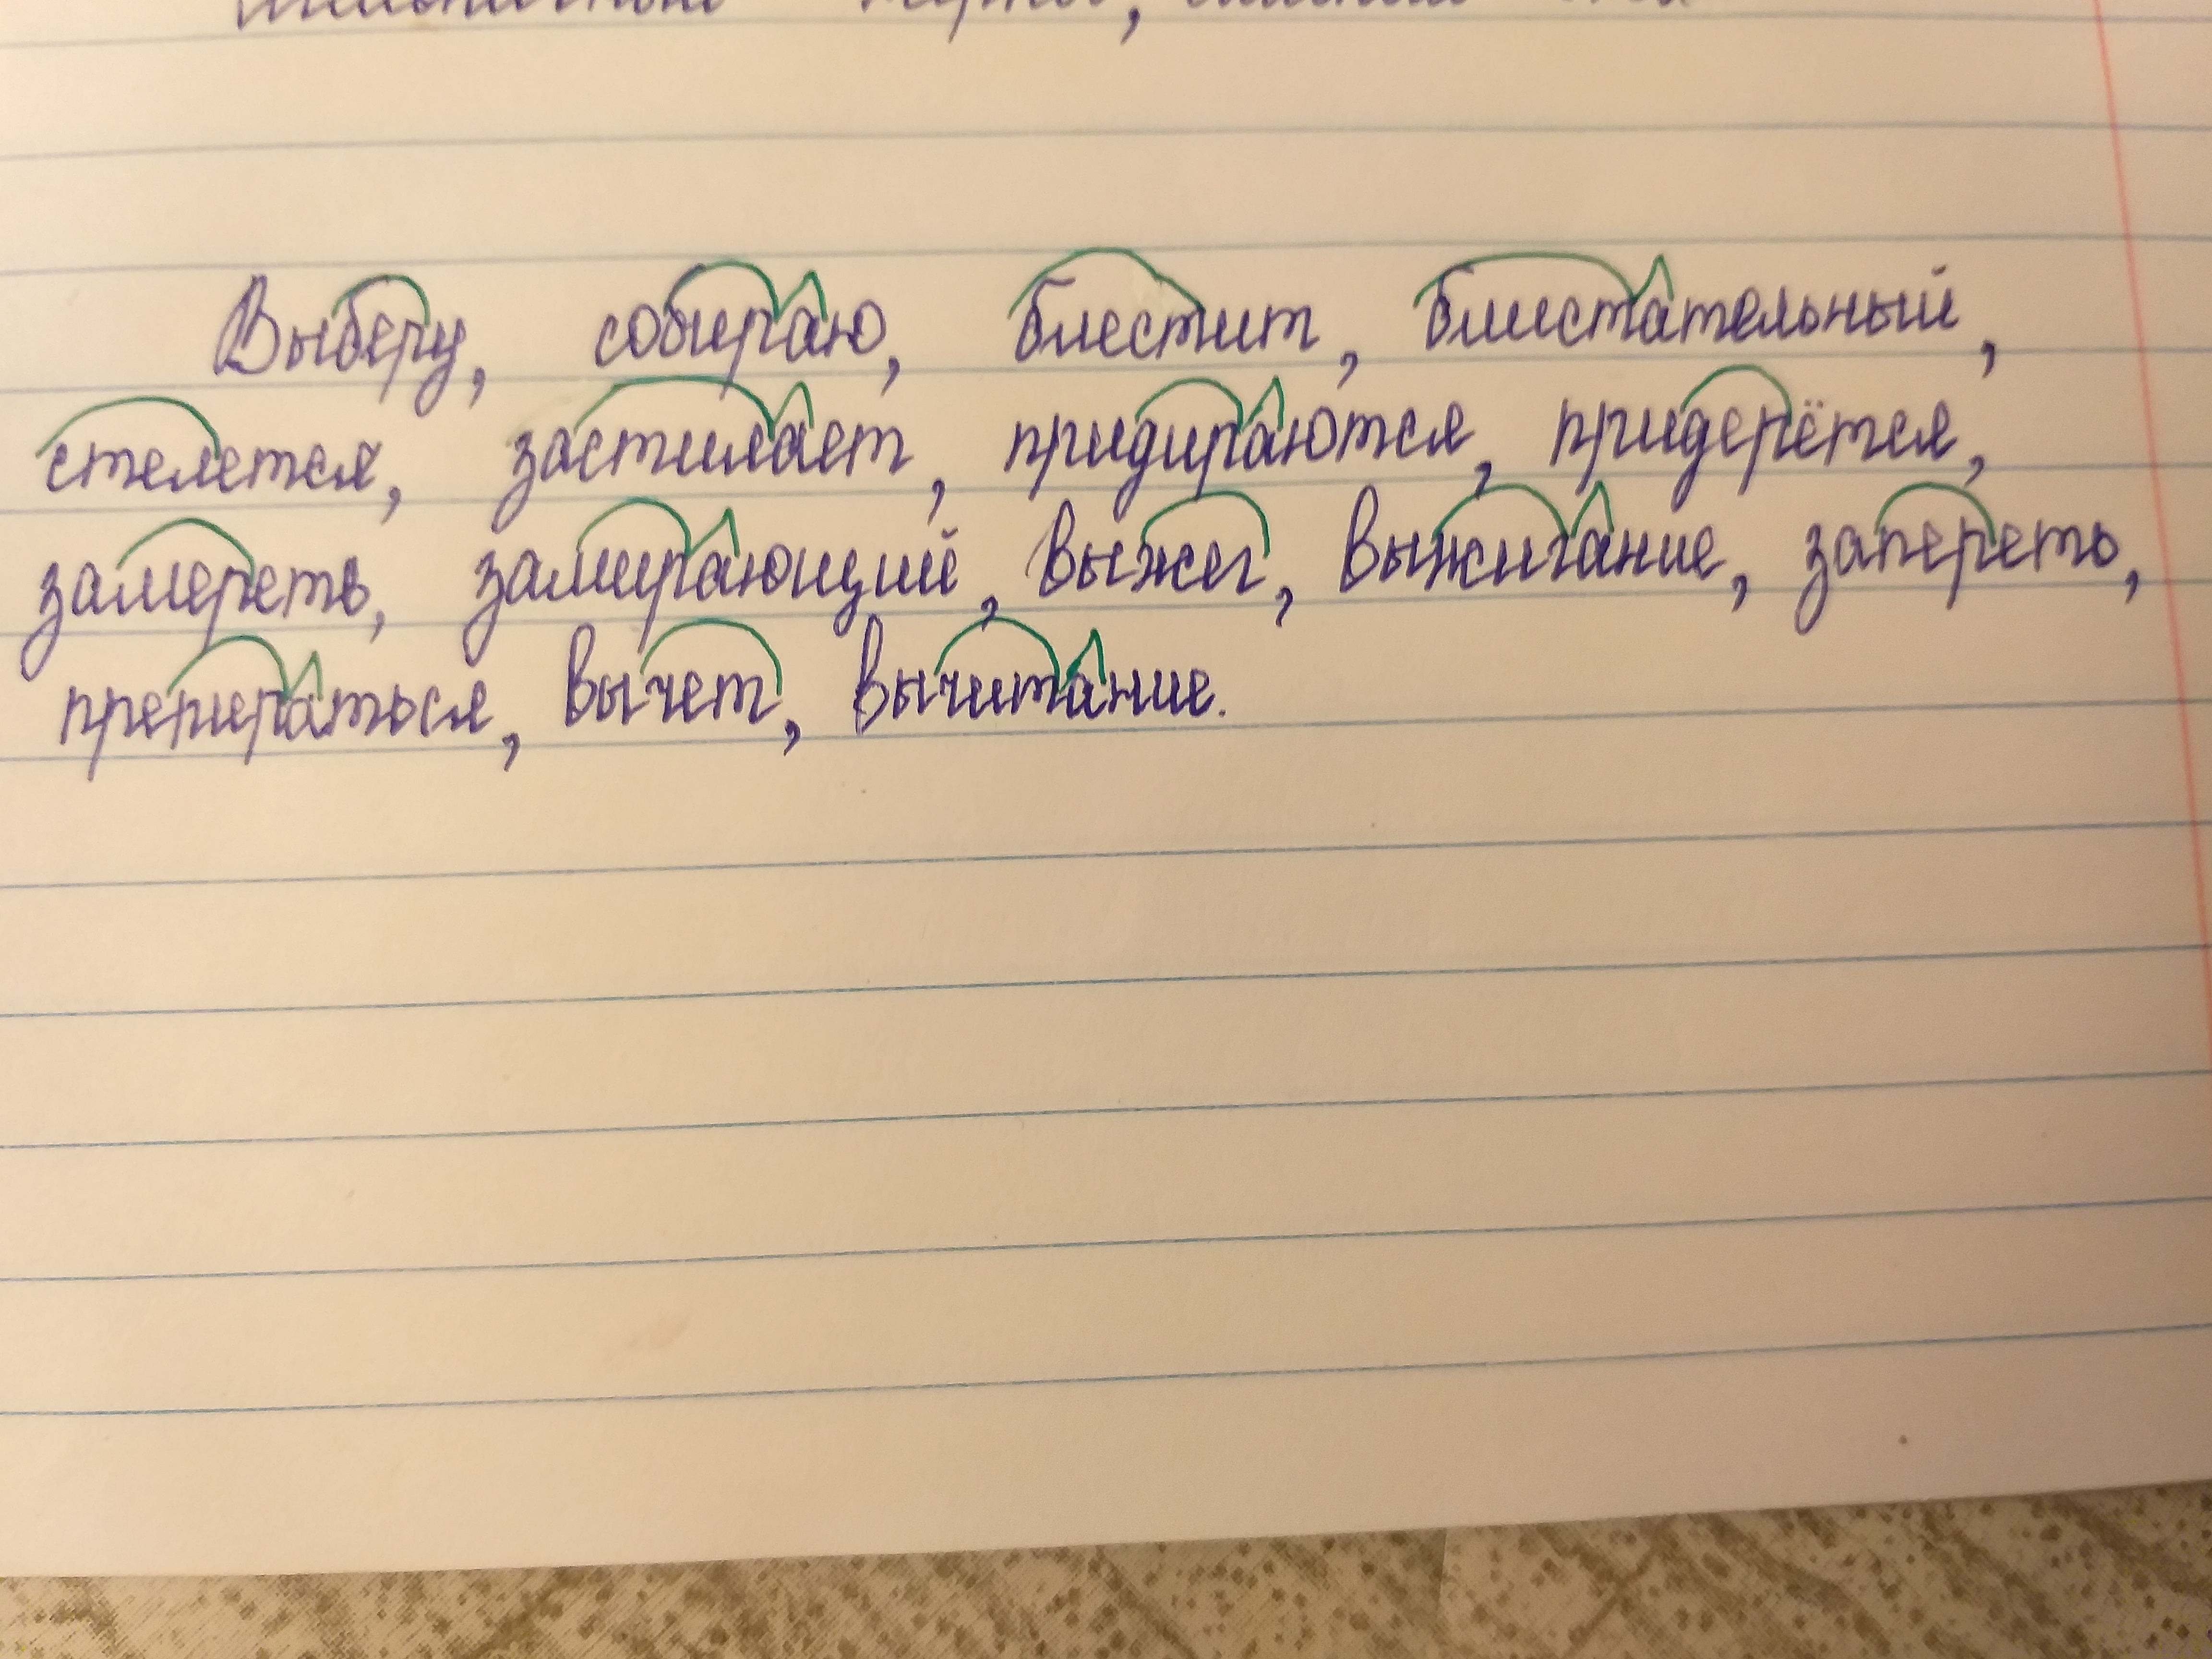 Выберу, собираю, блестит, блистательный,
стелется, застилает, придираются, придерётся,
замереть, замирающий, выжег, выжигание, запереть,
препираться, вычет, вычитание.